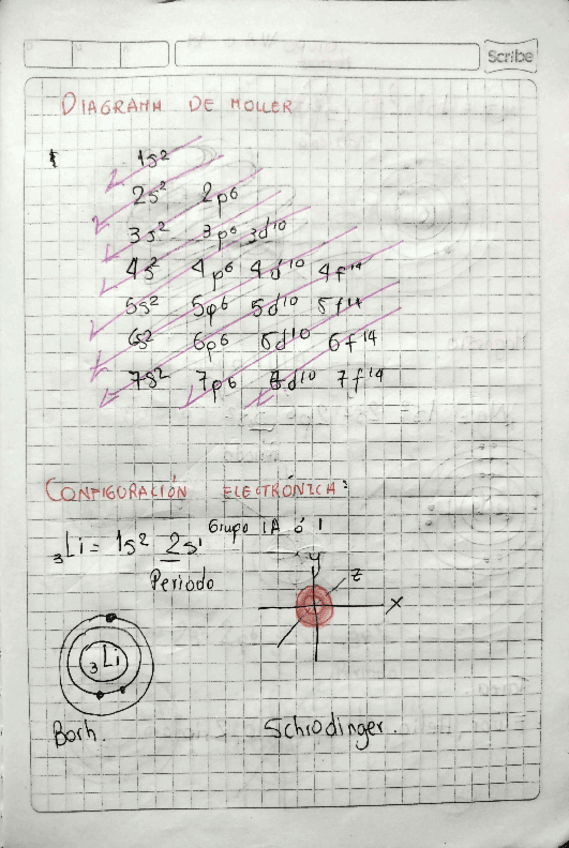 Scribe
DIAGRAMA DE MOLLER
1s²
2s² 2p⁶
3s² 3p⁶ 3d¹⁰
4s² 4p⁶ 4d¹⁰ 4f¹⁴
5s² 5p⁶ 5d¹⁰ 5f¹⁴
6s² 6p⁶ 6d¹⁰ 6f¹⁴
7s² 7p⁶ 7d¹⁰ 7f¹⁴
CONFIGURACIÓN ELECTRÓNICA:
Grupo IA ó 1
₃Li = 1s² 2s¹
Periodo
Y
Z
X
₃Li
Borh.
Schrodinger.